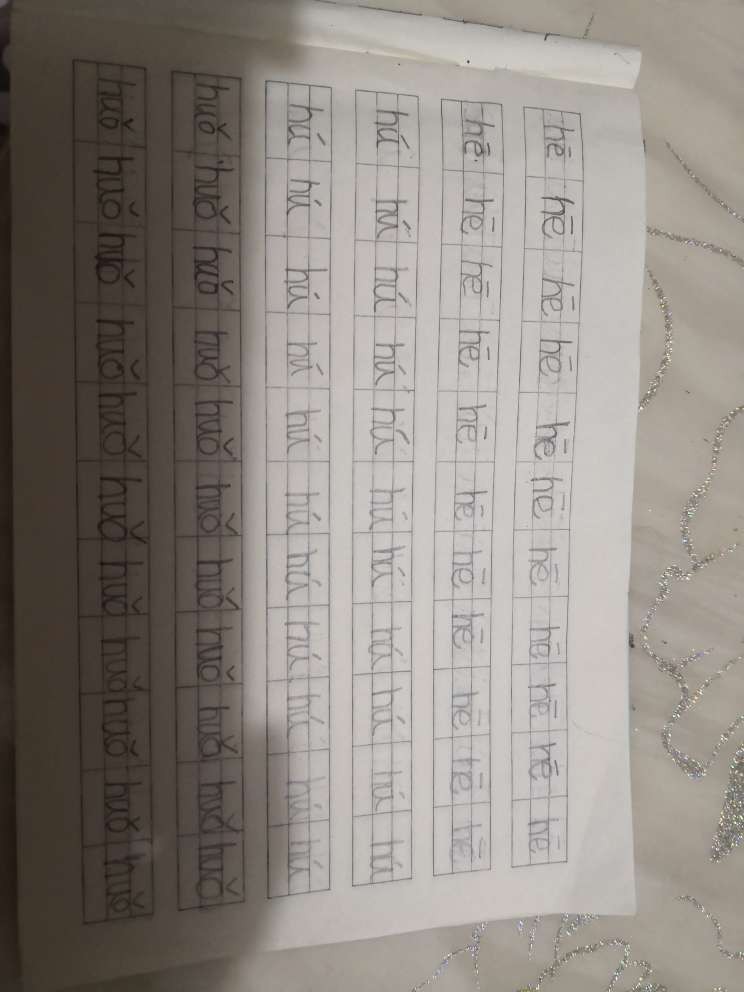 hē hē hē hē hē hē hē hē hē hē hē
hē hē hē hē hē hē hē hē hē hē hē
hú hú hú hú hú hú hú hú hú hú hú
hú hú hú hú hú hú hú hú hú hú hú
huǒ huǒ huǒ huǒ huǒ huǒ huǒ huǒ huǒ huǒ huǒ
huǒ huǒ huǒ huǒ huǒ huǒ huǒ huǒ huǒ huǒ huǒ